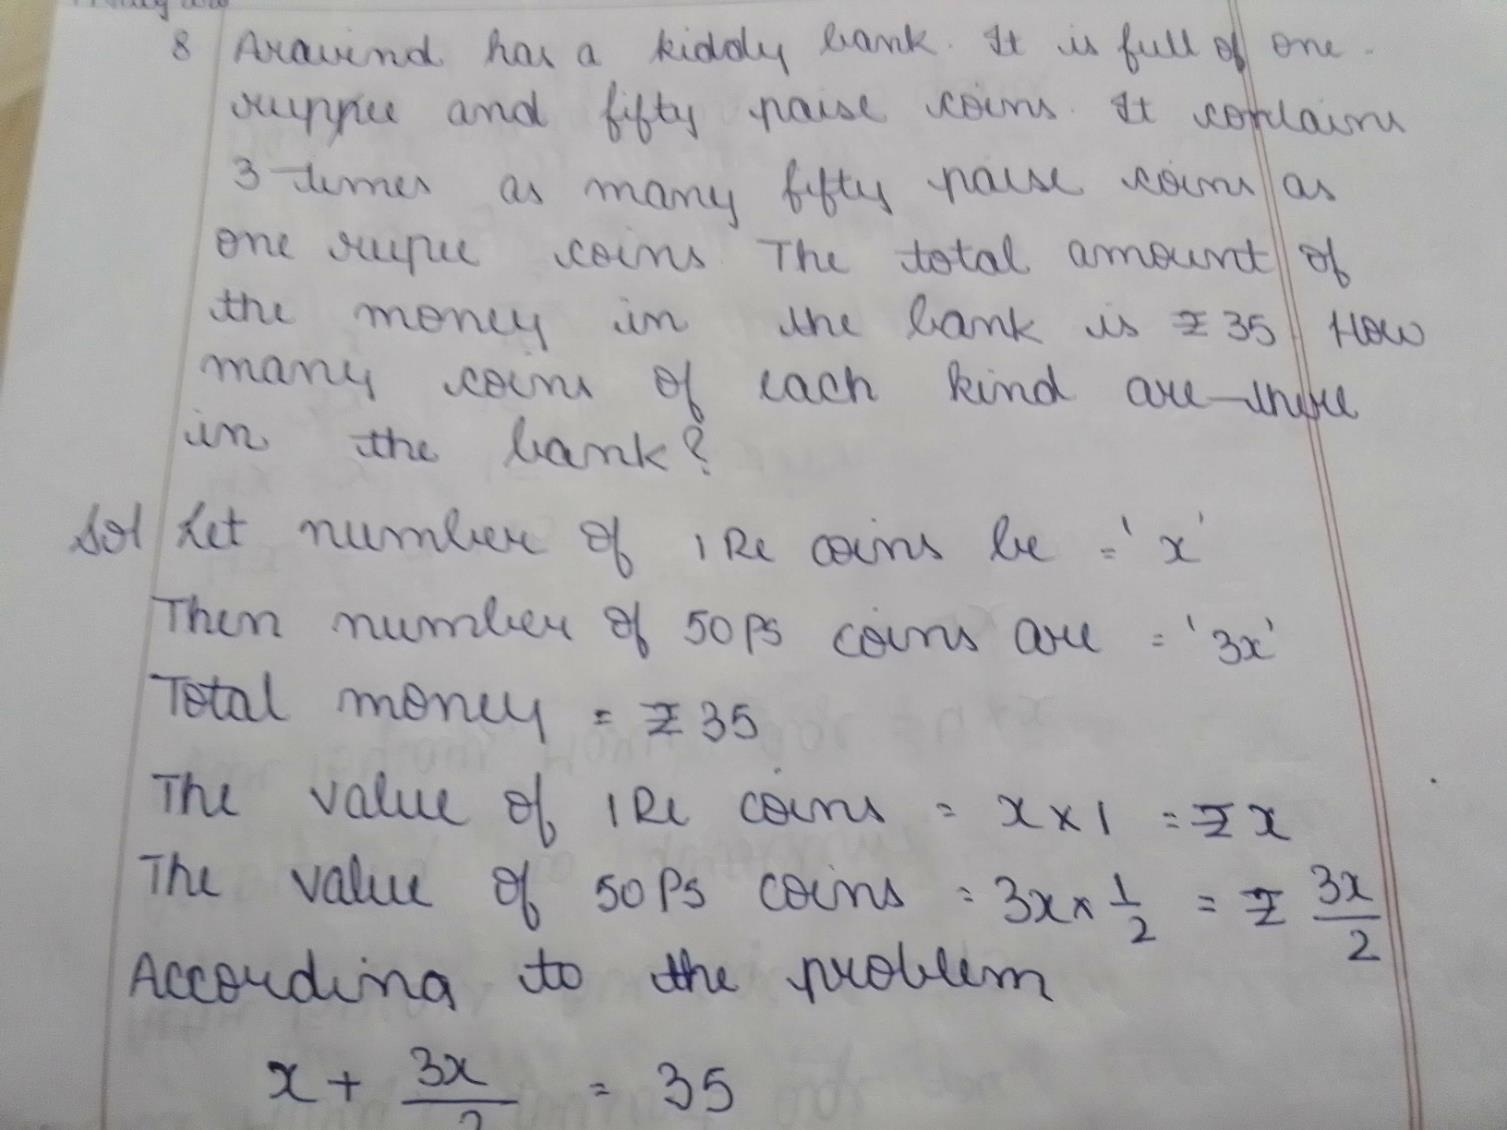 8 Aravind has a kiddy bank. It is full of one
ruppee and fifty paise coins. It contains
3 times as many fifty paise coins as
one rupee coins. The total amount of
the money in the bank is ₹ 35 How
many coins of each kind are there
in the bank?
Sol Let number of 1 Re coins be = 'x'
Then number of 50 PS coins are = '3x'
Total money = ₹ 35
The value of 1 Re coins = x × 1 = ₹ x
The value of 50 PS coins = 3x × 1/2 = ₹ 3x/2
According to the problem
x + 3x/2 = 35